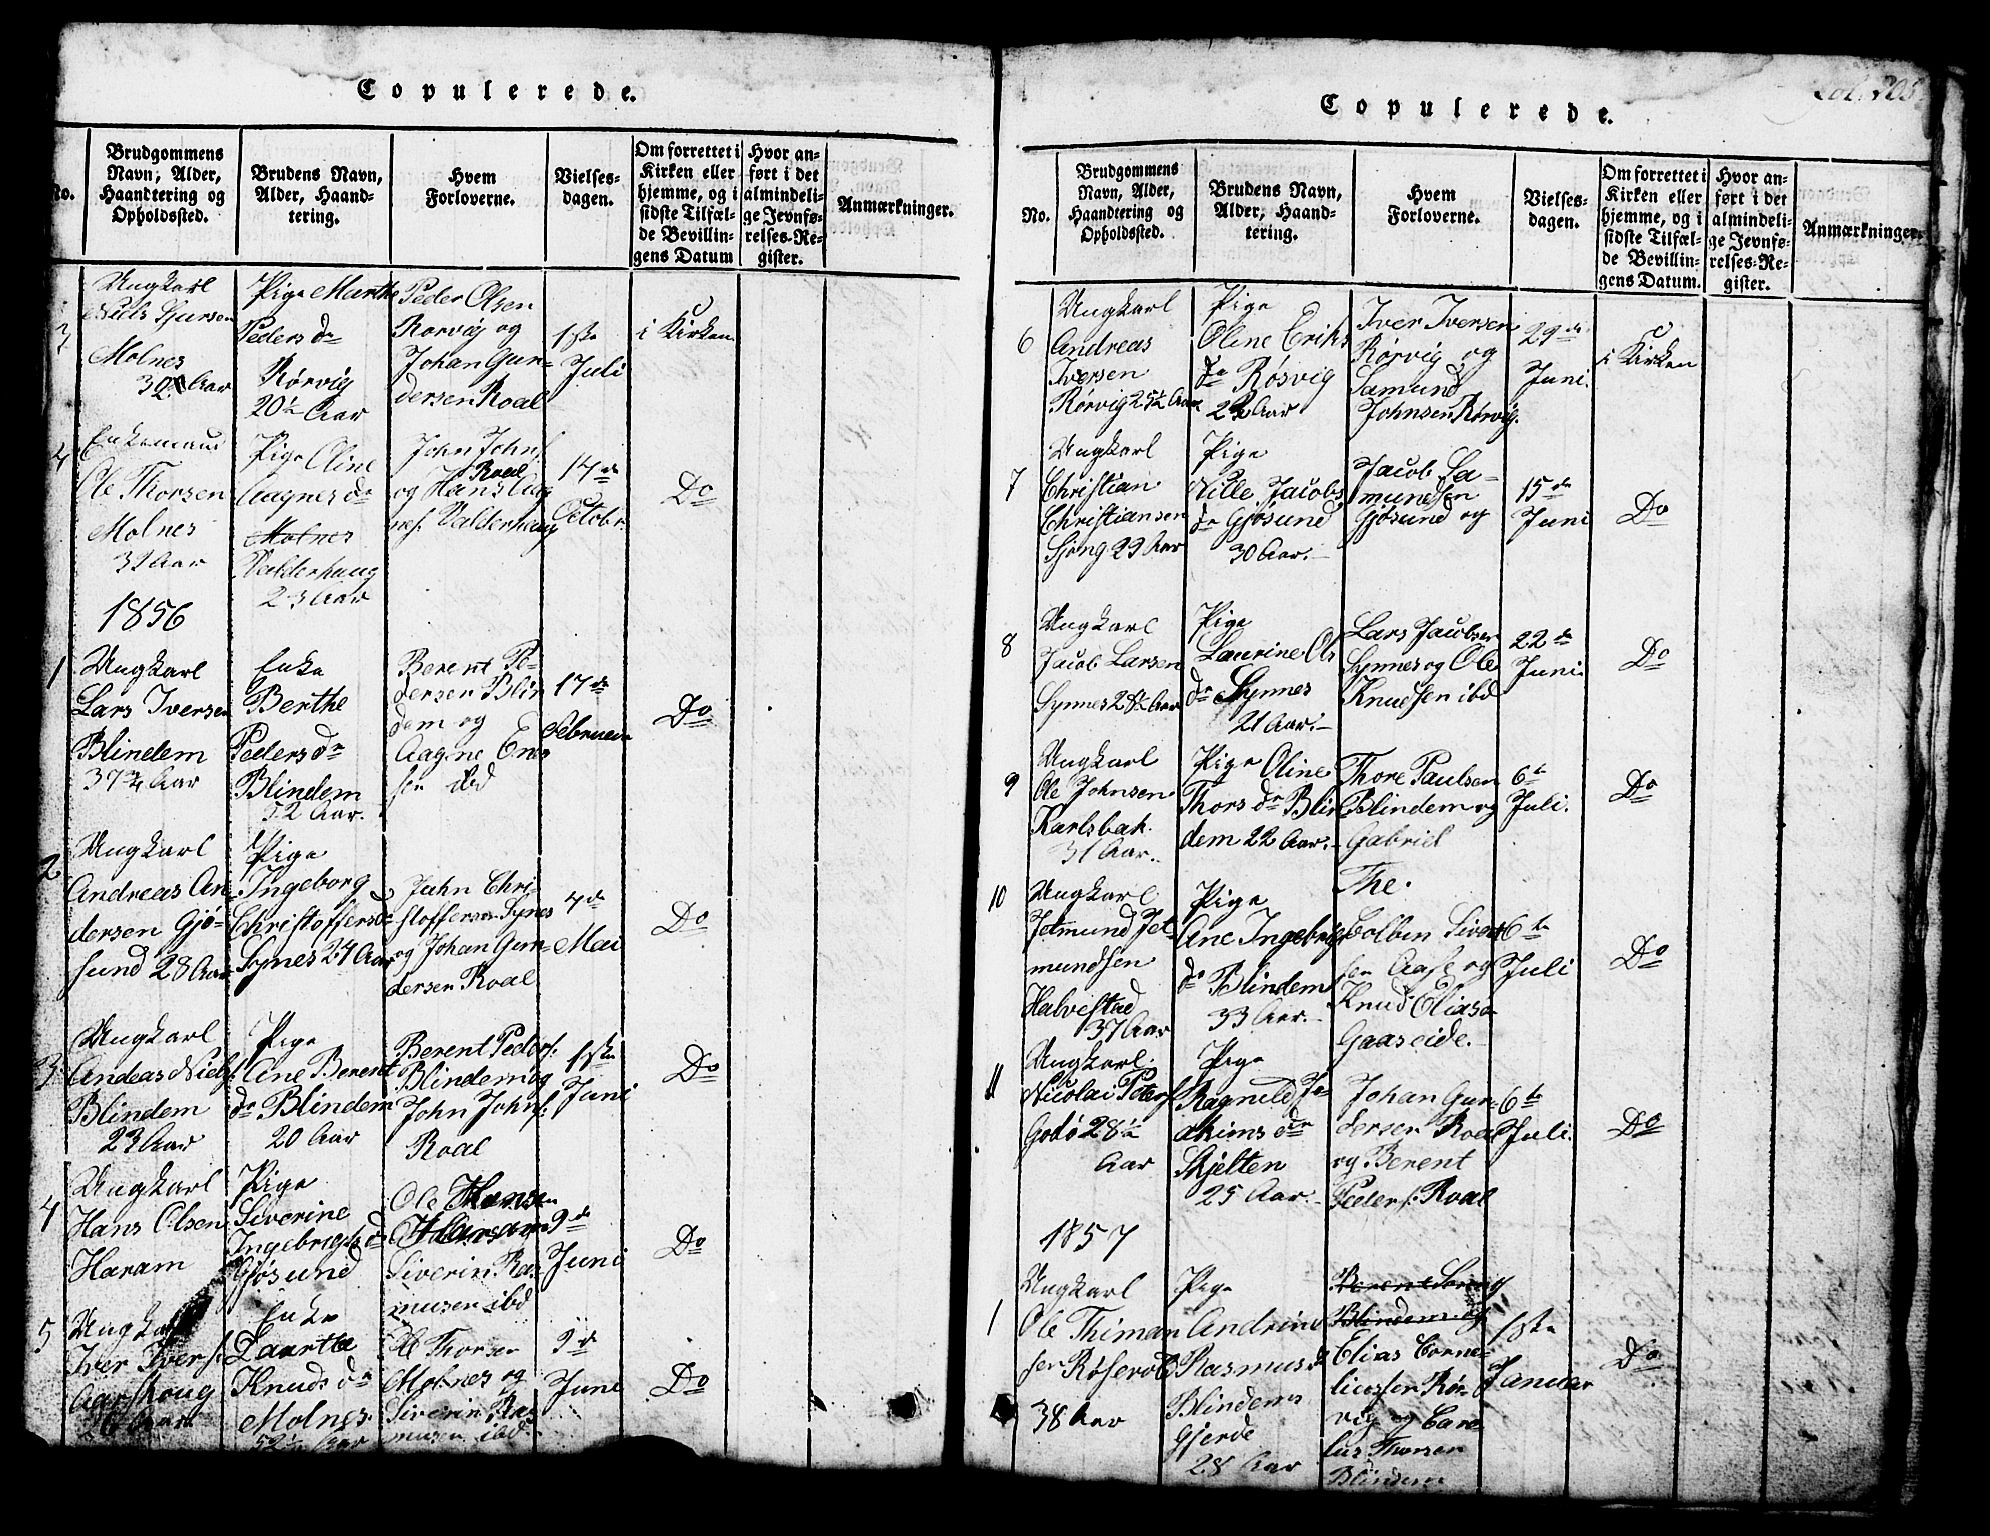 Copulerede.
No.
Brudgommens Navn, Alder, Haandtering og Opholdssted.
Brudens Navn, Alder, Haandtering.
Hvem Forloverne.
Vielsesdagen.
Om forrettet i Kirken eller hjemme, og i sidste Tilfælde Bevillingens Datum
Hvor anført i det almindelige Jevnførelses-Register.
Anmærkninger.
3
Ungkarl
Niels Sjursen
Molnes
Aar
Pige Marthe
Peders dr
Rørvig
20½ Aar
Peder Olsen
Rørvig og
Johan Gun-
dersen Roal
1ste
Juli
i Kirken
4
Enkemand
Ole Thorsen
Molnes
Aar
Pige Oline
Aagnes dr
Molnes
Valderhaug
23 Aar
John Johns.
Roal
og Hans Aag
nes. Valderhaug
14de
Octobr.
Do
1856
1
Ungkarl
Lars Iversen
Blindem
37¾ Aar
Enke
Berthe
Peders dr
Blindem
52 Aar.
Berent Pe-
dersen Blin
dem og
Aagne
sen ibd
17de
Februar
Do
2
Ungkarl
Andreas An-
dersen Gjø-
sund 28 Aar
Pige
Ingeborg
Christoffersdr
Synes 24 Aar
John Chri-
stoffersen Synes
og Johan Gun-
dersen Roal
4de
Mai
Do
3.
Ungkarl
Andeas Niels.
Blindem
23 Aar
Pige
Ane Berent
dr Blindem
20 Aar
Berent Peders.
Blindem og
John Johns.
Roal
1ste
Juni
Do
4
Ungkarl
Hans Olsen
Haram
Pige
Siverine
Ingebrigts dr
Gjøsund
Ole Hansen
Haram
Siverin Ras-
musen ibd
9de
Juni
Do
5
Ungkarl
Iver Ivers.
Aarskoug
Aar
Enke
Knuds dr
Molnes.
52½ Aar
Ole Thorsen
Molnes og
Siverin Ras
musen ibd.
9de
Juni
Do
Copulerede.
205
No.
Brudgommens Navn, Alder, Haandtering og Opholdssted.
Brudens Navn, Alder, Haandtering.
Hvem Forloverne.
Vielsesdagen.
Om forrettet i Kirken eller hjemme, og i sidste Tilfælde Bevillingens Datum.
Hvor anført i det almindelige Jevnførelses-Register.
Anmærkninger.
6
Ungkarl
Andreas
Iversen
Rørvig 25½ Aar
Pige
Oline Eriks
dr Røsvig
Aar
Iver Iversen
Rørvig og
Samund
Johnsen Rørvig.
29de
Juni.
i Kirken
7
Ungkarl
Christian
Christiansen
Sjong 23 Aar
Pige
Nille Jacobs
dr Gjøsund
30 Aar.
Jacob Sa-
mundsen
Gjøsund og
15de
Juni
Do
8
Ungkarl
Jacob Larsen
Synnes Aar
Pige
Laurine Ols
dr Synnes
21 Aar.
Lars Jacobsen
Synnes og Ole
Knudsen ibd
22de
Juni.
Do
9
Ungkarl
Ole Johnsen
Karlsbak.
31 Aar.
Pige Oline
Thors dr Blin
dem 22 Aar.
Thore Paulsen
Blindem og
Gabriel
The.
6te
Juli.
Do
10
Ungkarl
Jetmund Jet-
mundsen
Halvestad
37 Aar
Pige
Ane Ingebrigs
dr Blindem
33 Aar.
Colben Sivert
sen Aase og
Knud Elias
Gaaseide.
6te
Juli
Do
11
Ungkarl.
Nicolai Peters.
Godø 28½
Aar
Pige
Ragnild Jo
akims dr
Skjelten
25 Aar.
Johan Gun-
dersen Roal
og Berent
Peders. Roal
6te
Juli.
Do
1857
1
Ungkarl
Ole Thiman
sen Røsevold
38 Aar
Pige
Andrine
Rasmus dr
Blindem
Gjerde
28 Aar
Blindem og
Elias Corne-
liussen Rør-
vig og Care
lius Thorsen
Blindem
1ste
Januar
Do